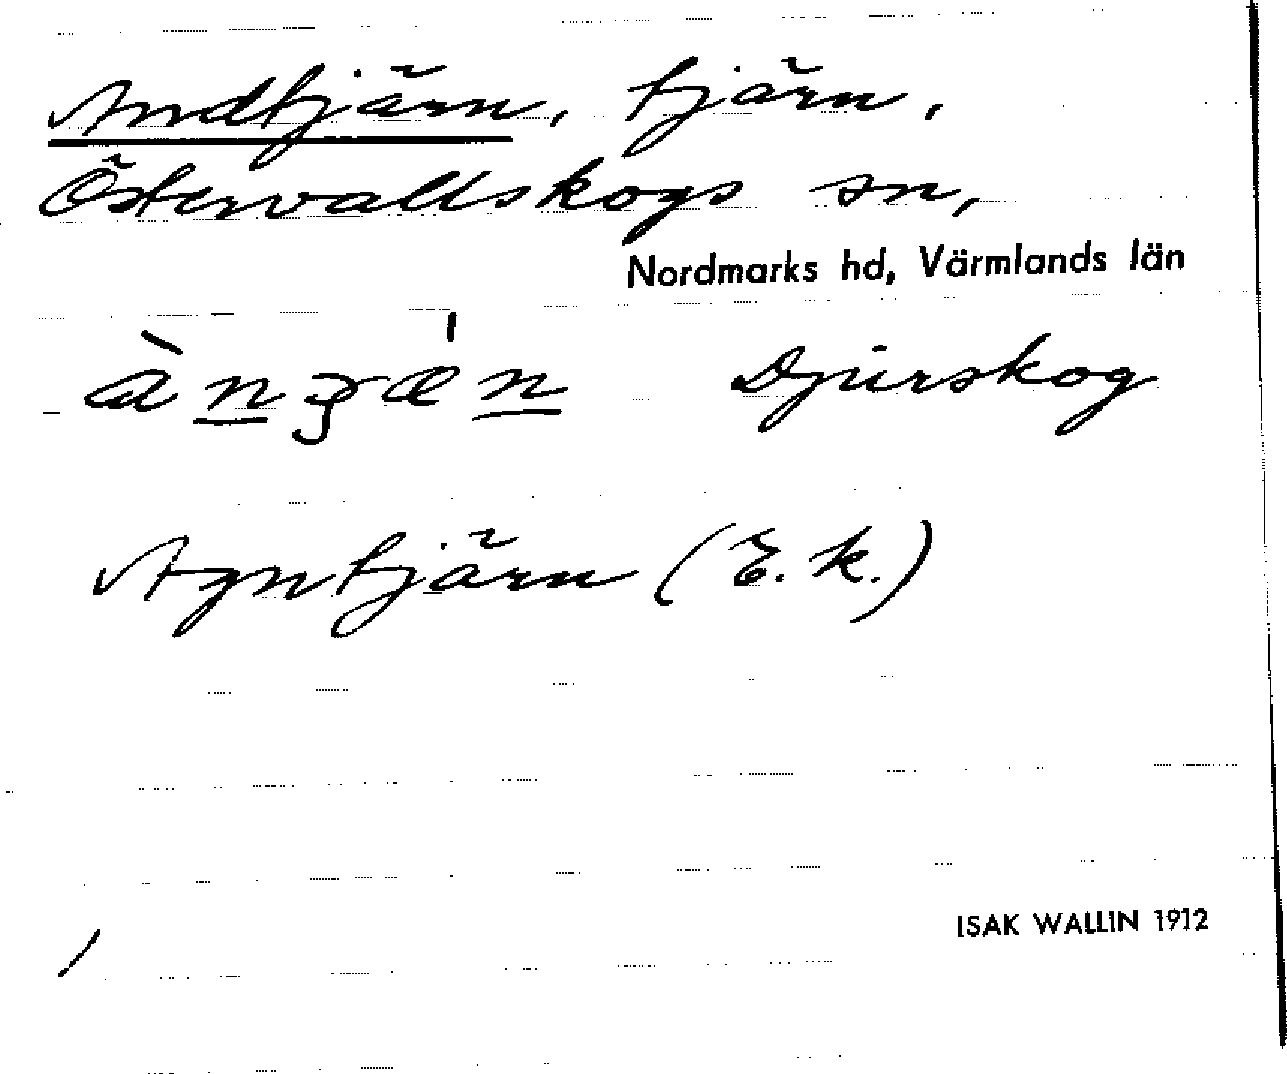 Andtjärn, tjärn,
Östervallskogs sn,
Nordmarks hd, Värmlands län
Djurskog
Agntjärn (E. k.)
ISAK WALLIN 1912